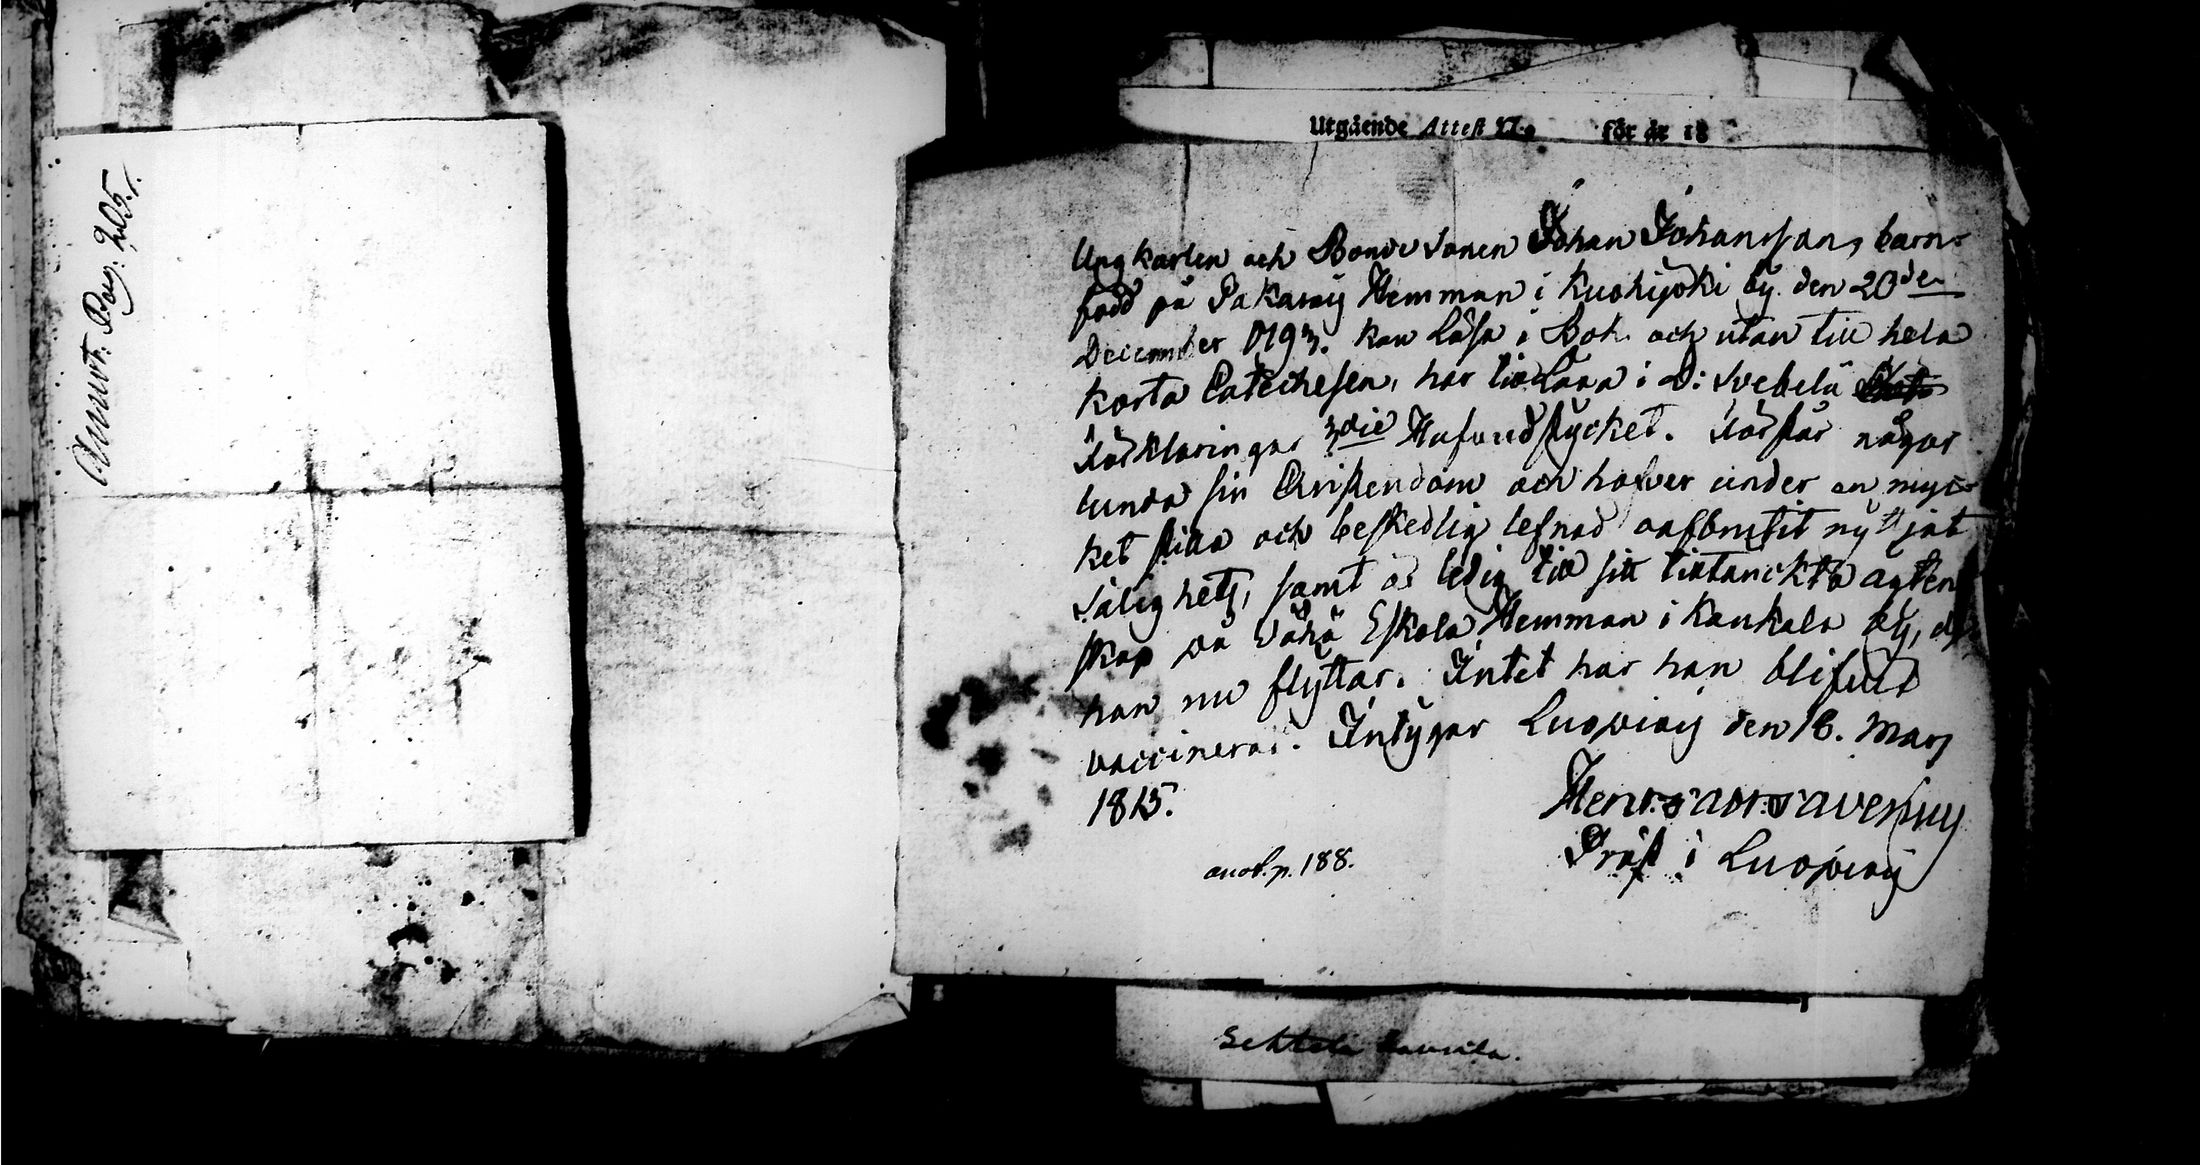 Annot: Pag: 205.
Utgående Attest N:o för år 18
Ungkarlen och Bonde Sonen Johan Johansson, barn-
född på Sakarig Hemman i Kuohijoki by den 20de
December 1793. kan läsa i Bok och utan till hela
korta Catechesen, har till Lära i D: Svebelii
Förklaringar 3die Hufvudstycket. Förstår någor
lunda sin Christendom och hafver under en myc-
ket stilla och beskedlig lefnad oafbrutit nyttjat
Salighetz, samt är ledig till sitt tilltänckta ägten
skap på Vähä Eskola Hemman i Kankala by, dit
han nu flyttar. Intet har han blifvit
vaccinerad. Intygar Luopiois den 18. Mars
1815.
Präst i Luopiois
anot. p. 188.